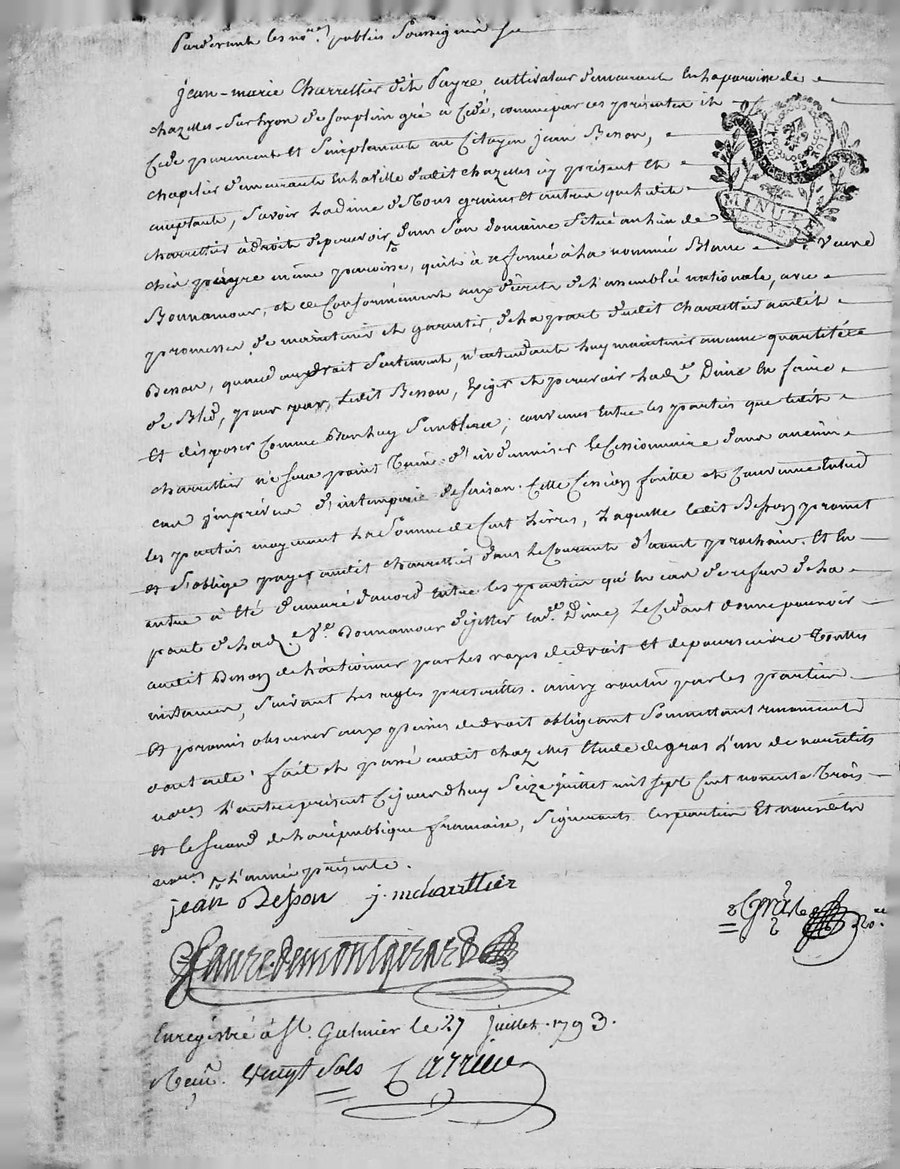 Pardevant les no.res publics Soussignés fu
jean-marie Charrettier dit Payre, cultivateur demeurant En la paroisse de
chazelles-Sur lyon de Son plein gré a Cédé, comme par ces présentes il
Cède purement et Simplement au Citoyen jean Besson,
chapelier demeurant En la ville dudit chazelles icy présent Et
acceptant, Savoir La dime de tous grains et autres que ledit
charrettier à droit de percevoir dans Son domaine Situé au lieu de
chez même paroisse, qu'il à affermé à la nommée Blanc Veuve
Bonnamour, et ce Conformément aux décrets de l'assemblé nationale, avec
promesse de maintenir et garantir de la part dudit charrettier audit
Besson, quand au droit Seulement, n'entendant luy maintenir aucune quantité
de Bled, pour par Ledit Besson, Exiger et percevoir lad.e Dime En faire
Et disposer Comme Bon luy Semblera; convenu Entre les parties que ledit
charrettier ne Sera point tenu d'indemniser le Cessionnaire dans aucun
cas imprévu d'intemperie de Saison. Cette Cession faitte et Convenue Entre
les parties moyenant La Somme de Cent Livres, Laquelle ledit Besson promet
et S'oblige payer audit charrettier dans le Courant d'aout prochain. Et En
outre à été demeuré d'acord Entre les parties qu'En cas de refus de la
part de lad.e V.e Bonnamour de payer lad.e Dime, Le Cédant donne pouvoir
audit Besson de l'actionner par les voyes de droit et de poursuivre toutes
instances, Suivant les regles prescrittes. ainsy voulu par les parties
Et promis observer aux peines de droit obligeant Soumettant renonceant
dont acte. fait et passé audit chazelles Etude de gras L'un de nousdits
no.res L'autre présent Cejourdhuy Seize juillet mil sept Cent nonente Trois
et le Second de la république française, Signerants les parties Et nousdits
no.res L'année présente.
jean Besson j. m charettier
Faure de montgirard
Gras No.re
Enregistré à St. Galmier le 27 juillet. 1793.
Reçu. vingt Sols Carrier
MINUTE